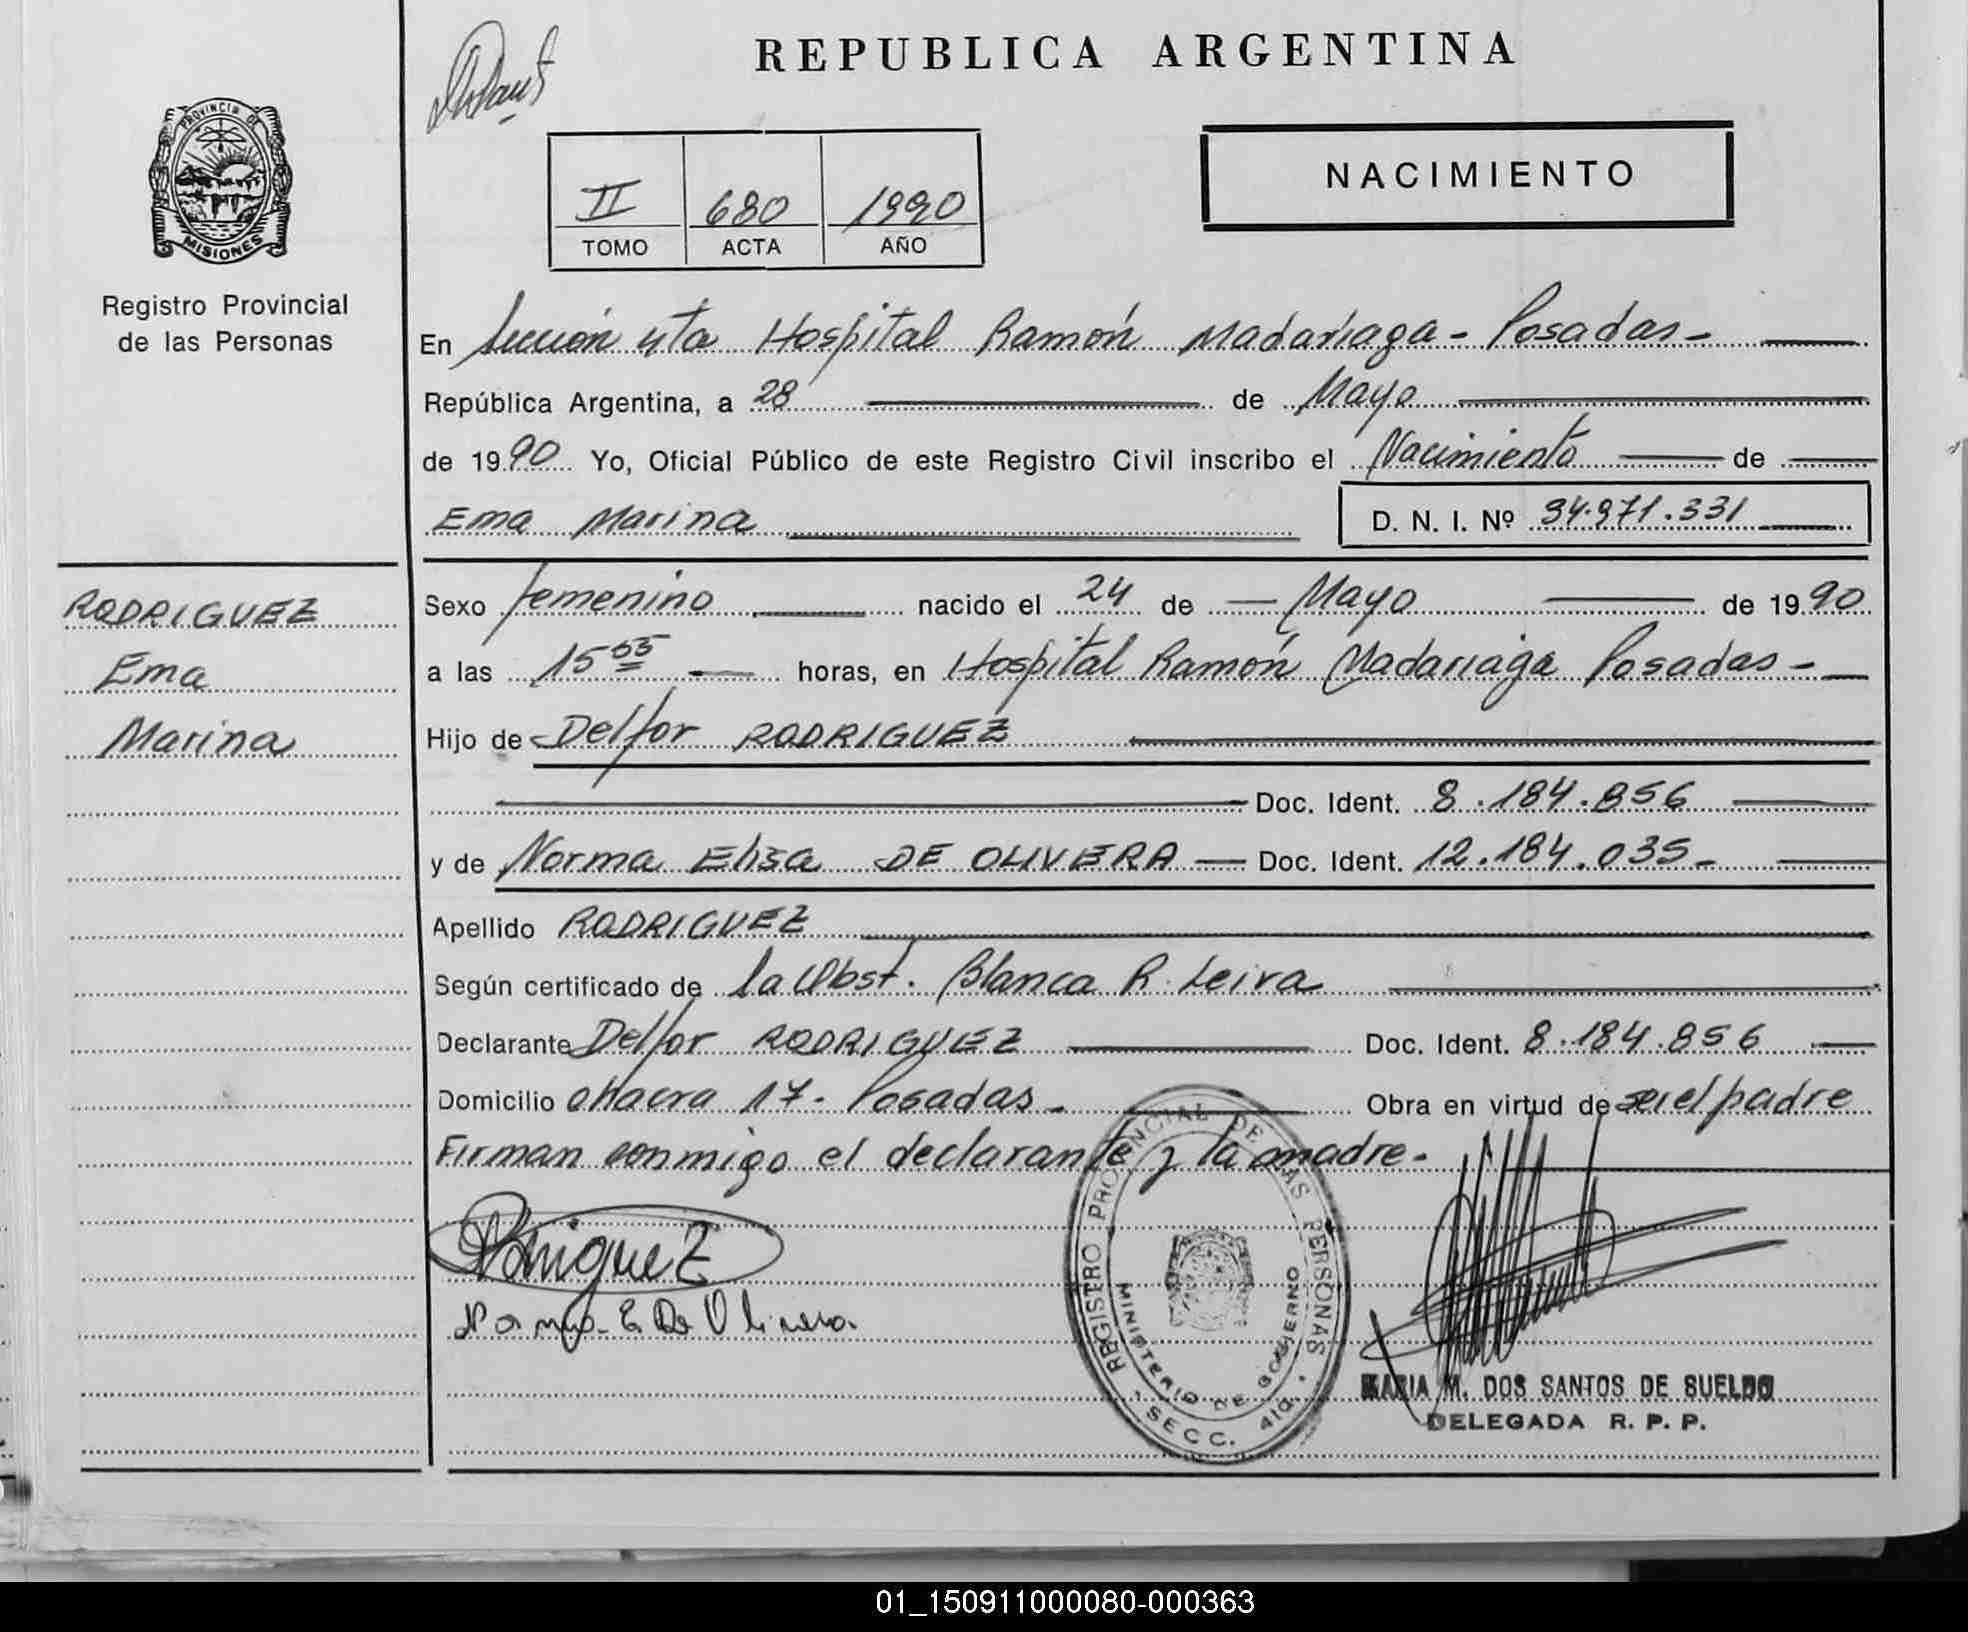 REPUBLICA ARGENTINA
PROVINCIA DE
MISIONES
Registro Provincial
de las Personas
II 680 1990
TOMO ACTA AÑO
NACIMIENTO
En Sección 4ta Hospital Ramón Madariaga - Posadas -
República Argentina, a 28 de Mayo
de 1990 Yo, Oficial Público de este Registro Civil inscribo el Nacimiento de
Ema Marina D. N. I. Nº 34.971.331
RODRIGUEZ
Ema
Marina
Sexo femenino nacido el 24 de Mayo de 1990
a las 15 55 horas, en Hospital Ramón Madariaga Posadas -
Hijo de Delfor RODRIGUEZ
Doc. Ident. 8.184.856
y de Norma Elisa DE OLIVERA Doc. Ident. 12.184.035-
Apellido RODRIGUEZ
Según certificado de la Obst. Blanca R. Leiva
Declarante Delfor RODRIGUEZ Doc. Ident. 8.184.856
Domicilio chacra 17- Posadas - Obra en virtud de ser el padre
Firman conmigo el declarante y la madre.
REGISTRO PROVINCIAL DE LAS PERSONAS
MINISTERIO DE GOBIERNO
SECC. 4ta.
Norma E De Olivera.
MARIA M. DOS SANTOS DE SUELDO
DELEGADA R. P. P.
01_150911000080-000363